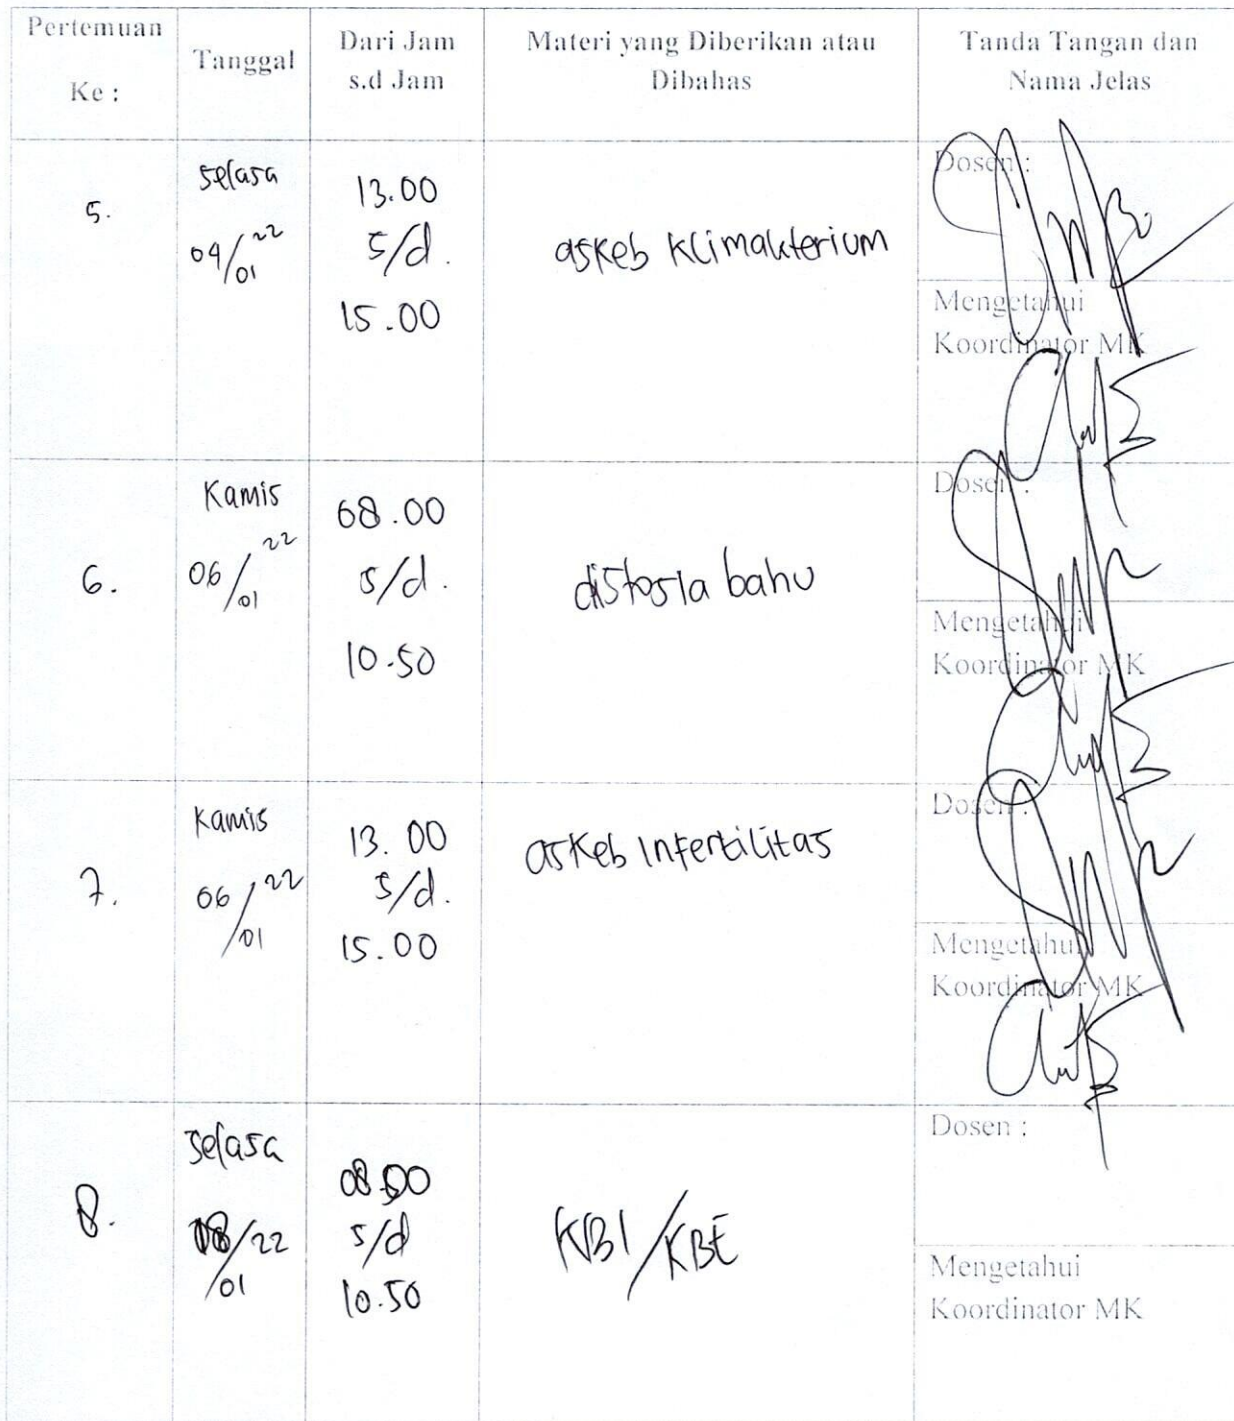 Pertemuan
Ke :
Tanggal
Dari Jam
s.d Jam
Materi yang Diberikan atau
Dibahas
Tanda Tangan dan
Nama Jelas
5.
Selasa
04/01 22
13.00
s/d.
15.00
askeb klimakterium
Dosen :
Mengetahui
Koordinator MK
6.
Kamis
06/01 22
08.00
s/d.
10.50
distosia bahu
Dosen :
Mengetahui
Koordinator MK
7.
Kamis
06/01 22
13.00
s/d.
15.00
askeb Infertilitas
Dosen :
Mengetahui
Koordinator MK
8.
Selasa
18/01/22
08.00
s/d
10.50
KBI/KBE
Dosen :
Mengetahui
Koordinator MK